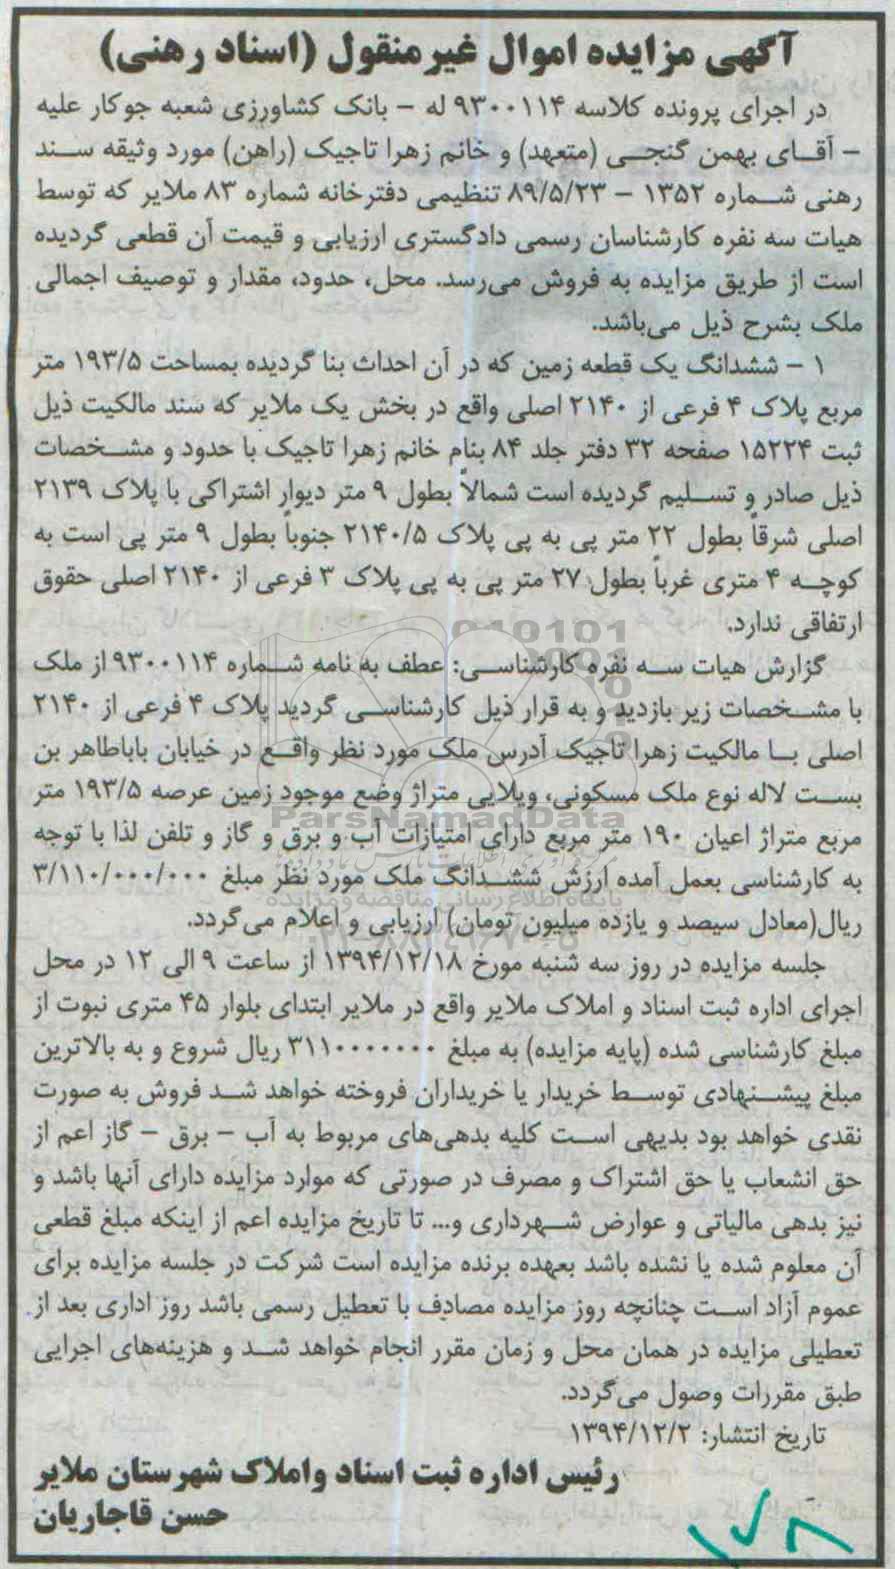 آگهی مزایده اموال غیرمنقول (اسناد رهنی)
در اجرای پرونده کلاسه ۹۳۰۰۱۱۴ له – بانک کشاورزی شعبه جوکار علیه
– آقای بهمن گنجی (متعهد) و خانم زهرا تاجیک (راهن) مورد وثیقه سند
رهنی شماره ۱۳۵۲ – ۸۹/۵/۲۳ تنظیمی دفترخانه شماره ۸۳ ملایر که توسط
هیات سه نفره کارشناسان رسمی دادگستری ارزیابی و قیمت آن قطعی گردیده
است از طریق مزایده به فروش می‌رسد. محل، حدود، مقدار و توصیف اجمالی
ملک بشرح ذیل می‌باشد.
۱ – ششدانگ یک قطعه زمین که در آن احداث بنا گردیده بمساحت ۱۹۳/۵ متر
مربع پلاک ۴ فرعی از ۲۱۴۰ اصلی واقع در بخش یک ملایر که سند مالکیت ذیل
ثبت ۱۵۲۲۴ صفحه ۳۲ دفتر جلد ۸۴ بنام خانم زهرا تاجیک با حدود و مشخصات
ذیل صادر و تسلیم گردیده است شمالاً بطول ۹ متر دیوار اشتراکی با پلاک ۲۱۳۹
اصلی شرقاً بطول ۲۲ متر پی به پی پلاک ۲۱۴۰/۵ جنوباً بطول ۹ متر پی است به
کوچه ۴ متری غرباً بطول ۲۷ متر پی به پی پلاک ۳ فرعی از ۲۱۴۰ اصلی حقوق
ارتفاقی ندارد.
گزارش هیات سه نفره کارشناسی: عطف به نامه شماره ۹۳۰۰۱۱۴ از ملک
با مشخصات زیر بازدید و به قرار ذیل کارشناسی گردید پلاک ۴ فرعی از ۲۱۴۰
اصلی با مالکیت زهرا تاجیک آدرس ملک مورد نظر واقع در خیابان باباطاهر بن
بست لاله نوع ملک مسکونی، ویلایی متراژ وضع موجود زمین عرصه ۱۹۳/۵ متر
ParsNamadData
مربع متراژ اعیان ۱۹۰ متر مربع دارای امتیازات آب و برق و گاز و تلفن لذا با توجه
به کارشناسی بعمل آمده ارزش ششدانگ ملک مورد نظر مبلغ ۳/۱۱۰/۰۰۰/۰۰۰
پایگاه اطلاع رسانی مناقصه و مزایده
ریال(معادل سیصد و یازده میلیون تومان) ارزیابی و اعلام می‌گردد.
جلسه مزایده در روز سه شنبه مورخ ۱۳۹۴/۱۲/۱۸ از ساعت ۹ الی ۱۲ در محل
اجرای اداره ثبت اسناد و املاک ملایر واقع در ملایر ابتدای بلوار ۴۵ متری نبوت از
مبلغ کارشناسی شده (پایه مزایده) به مبلغ ۳۱۱۰۰۰۰۰۰۰ ریال شروع و به بالاترین
مبلغ پیشنهادی توسط خریدار یا خریداران فروخته خواهد شد فروش به صورت
نقدی خواهد بود بدیهی است کلیه بدهی‌های مربوط به آب – برق – گاز اعم از
حق انشعاب یا حق اشتراک و مصرف در صورتی که موارد مزایده دارای آنها باشد و
نیز بدهی مالیاتی و عوارض شهرداری و... تا تاریخ مزایده اعم از اینکه مبلغ قطعی
آن معلوم شده یا نشده باشد بعهده برنده مزایده است شرکت در جلسه مزایده برای
عموم آزاد است چنانچه روز مزایده مصادف با تعطیل رسمی باشد روز اداری بعد از
تعطیلی مزایده در همان محل و زمان مقرر انجام خواهد شد و هزینه‌های اجرایی
طبق مقررات وصول می‌گردد.
تاریخ انتشار: ۱۳۹۴/۱۲/۲
رئیس اداره ثبت اسناد واملاک شهرستان ملایر
حسن قاجاریان